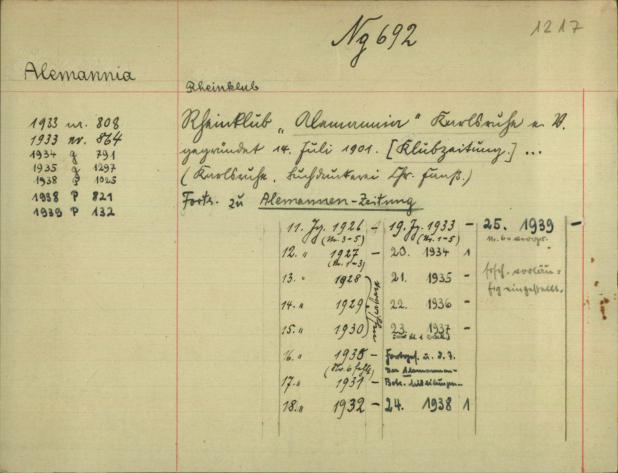 Ng 692
1217
Alemannia
Rheinklub
1933 nr. 808
1933 nr. 864
1934 g 791
1935 g 1297
1938 P 1025
1938 P 821
1939 P 132
Rheinklub „Alemannia" Karlsruhe e. V.
gegründet 14. Juli 1901. [Klubzeitung.] ...
(Karlsruhe, Buchdruckerei Chr. Fauß.)
Forts. zu Alemannen-Zeitung
11. Jg. 1926 – 19. Jg. 1933 – 25. 1939 –
(Nr. 3-5) (Nr. 1-5)
12. " 1927 – 20. 1934 1
(Nr. 1-3)
13. " 1928 21. 1935 –
ersch. vorläu=
fig eingestellt.
14. " 1929 22. 1936 –
15. " 1930 23. 1937 –
16. " 1930 – Fortges. u. d. T.
(Nr. 6 fehlt) Der Alemannen-
17. " 1931 –
18. " 1932 – 24. 1938 1